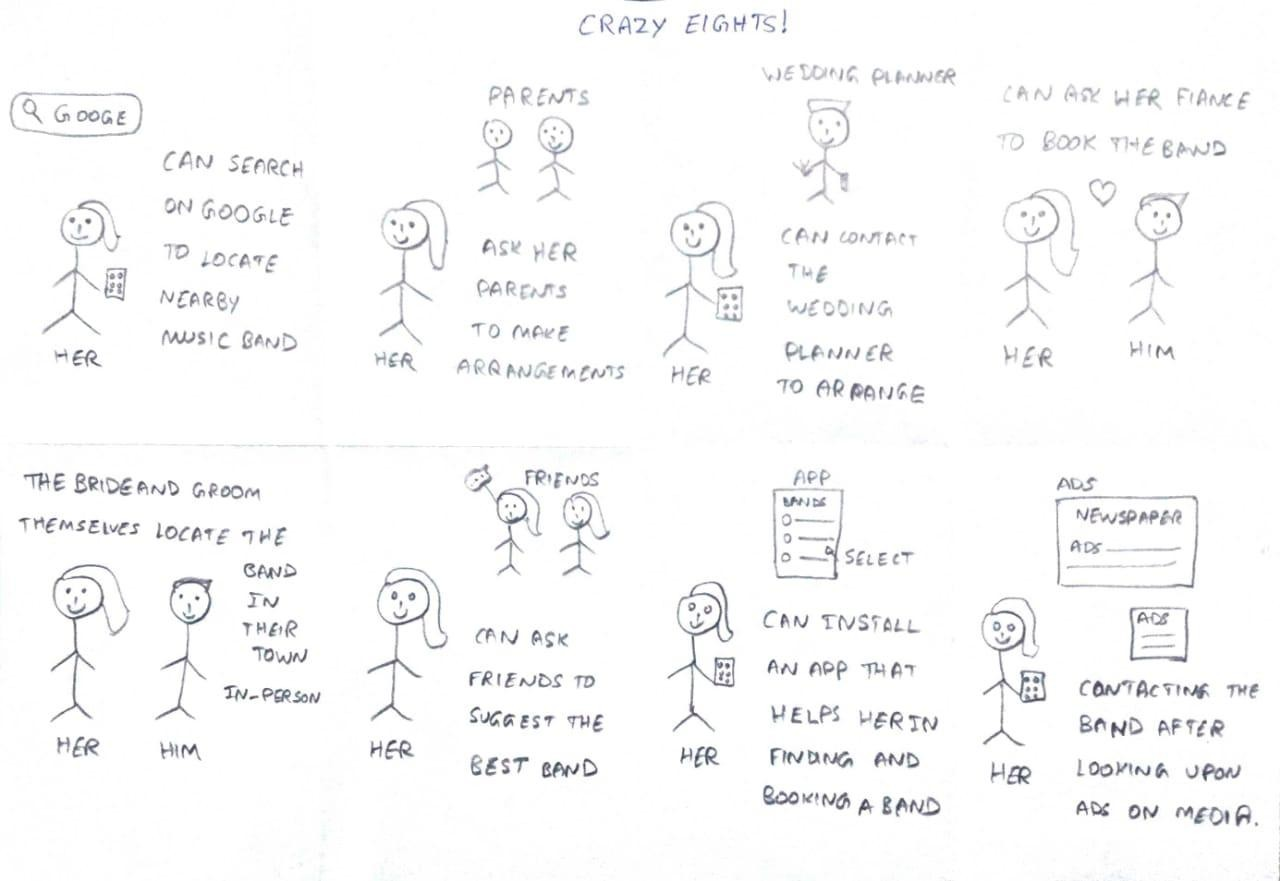 CRAZY EIGHTS!
GOOGE
CAN SEARCH
ON GOOGLE
TO LOCATE
NEARBY
MUSIC BAND
HER
PARENTS
ASK HER
PARENTS
TO MAKE
ARRANGEMENTS
HER
WEDDING PLANNER
CAN CONTACT
THE
WEDDING
PLANNER
TO ARRANGE
HER
CAN ASK HER FIANCE
TO BOOK THE BAND
HER
HIM
THE BRIDE AND GROOM
THEMSELVES LOCATE THE
BAND
IN
THEIR
TOWN
IN-PERSON
HER
HIM
FRIENDS
CAN ASK
FRIENDS TO
SUGGEST THE
BEST BAND
HER
APP
BANDS
SELECT
CAN INSTALL
AN APP THAT
HELPS HER IN
FINDING AND
BOOKING A BAND
HER
ADS
NEWSPAPER
ADS
ADS
CONTACTING THE
BAND AFTER
LOOKING UPON
ADS ON MEDIA.
HER